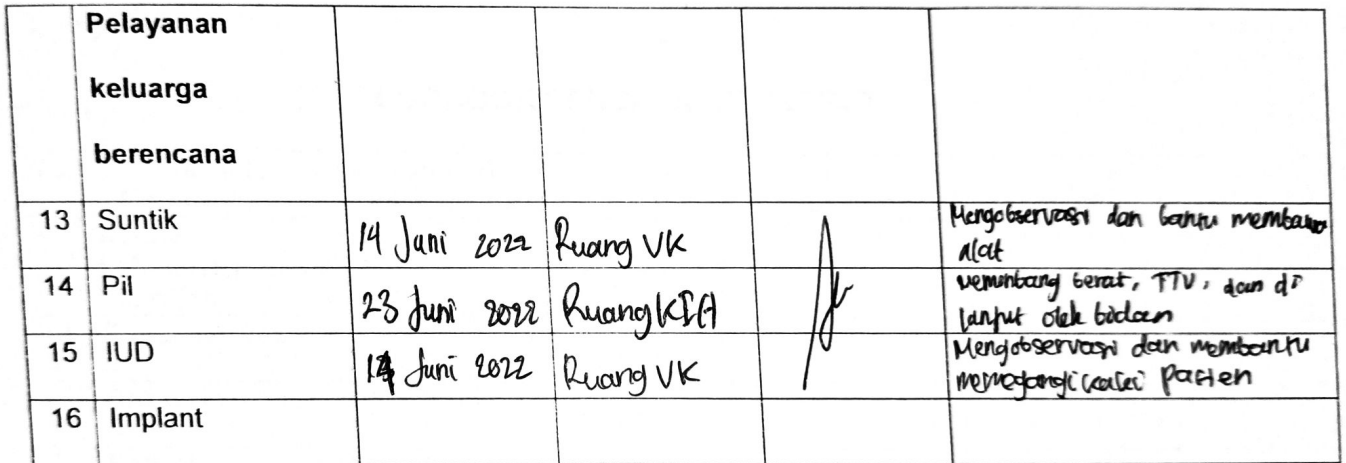 Pelayanan
keluarga
berencana
13 Suntik 14 Juni 2022 Ruang VK Mengobservasi dan bantu membawa
alat
14 Pil 23 Juni 2022 Ruang KIA Menimbang berat, TTV, dan di
lanjut oleh bidan
15 IUD 14 Juni 2022 Ruang VK Mengobservasi dan membantu
memegangi kaki pasien
16 Implant